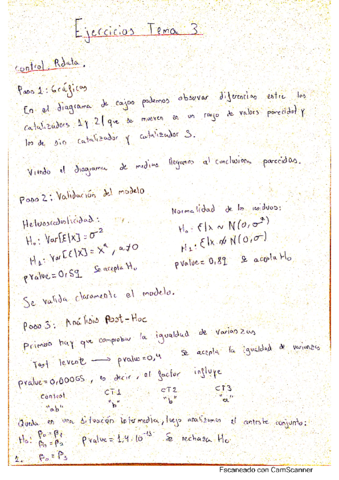 Ejercicios Tema 3
control. Rdata.
Paso 1: Gráficos
En el diagrama de cajas podemos observar diferencias entre los
catalizadores 1 y 2 (que se mueven en un rango de valores parecidos) y
los de sin catalizador y catalizador 3.
Viendo el diagrama de medias llegamos al conclusiones parecidas.
Paso 2: Validación del modelo
Heteroscedasticidad:
H₀: Var[ε|X] = σ²
H₁: Var[ε|X] = xᵅ, α≠0
pvalue = 0,89 Se acepta H₀
Normalidad de los residuos:
H₀: ε|x ~ N(0, σ²)
H₁: ε|x ≁ N(0, σ)
pvalue = 0,89 se acepta H₀
Se valida claramente el modelo.
Paso 3: Análisis Post-Hoc
Primero hay que comprobar la igualdad de varianzas
Test levene → pvalue = 0,4 Se acepta la igualdad de varianzas
pvalue = 0,00065, es decir, el factor influye
control CT1 CT2 CT3
"ab" "b" "b" "a"
Queda en una situación intermedia, luego analizamos el contraste conjunto:
H₀: β₀ = β₁
β₀ = β₂
β₀ = β₃
pvalue = 1.9 · 10⁻¹³ Se rechaza H₀
1.
Escaneado con CamScanner